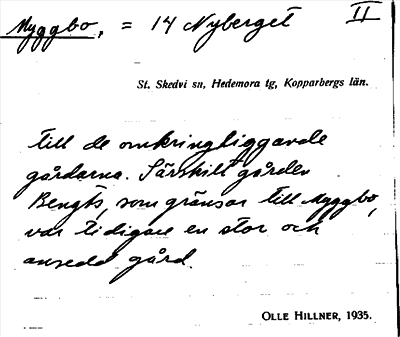 Myggbo, = 14 Nyberget II
St. Skedvi sn, Hedemora tg, Kopparbergs län.
till de omkringliggande
gårdarna. Särskilt gården
Bengts, som gränsar till Myggbo,
var tidigare en stor och
ansedd gård.
OLLE HILLNER, 1935.